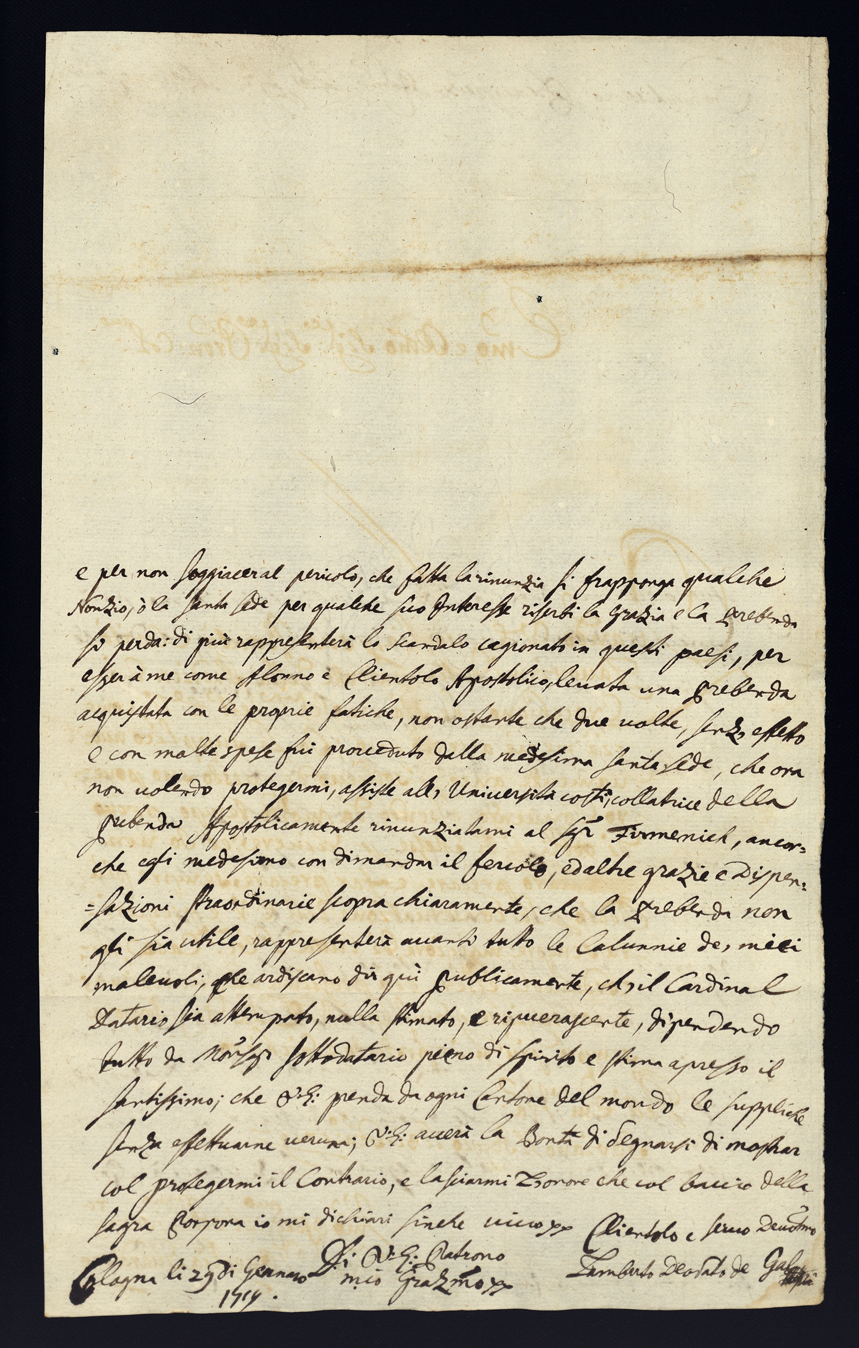 e per non soggiacer al pericolo, che fatta la rinunzia si frapponga qualche
Nonzio, ò la santa sede per qualche suo Interesse riserbi la grazia e la prebenda
si perda: di più rappresenterà lo scandalo cagionato in questi paesi, per
esser à me come Alonno e Clientolo Apostolico, levata una prebenda
acquistata con le proprie fatiche, non ostante che due volte, senza effetto
e con molte spese fui proveduto dalla medesima santa sede, che ora
non volendo protegermi, assiste alla Universita costi, collatrice della
prebenda Apostolicamente rinunziatami al Sigr Firmenich, ancor=
che egli medesimo con dimandar il , ed altre grazie e Dispen=
=sazioni straordinarie scopra chiaramente, che la prebenda non
gli sia utile, rappresenterà avanti tutto le Calunnie de, miei
malevoli, che ardiscano dir quì publicamente, che il Cardinal
Datario sia attempato, nulla stimato, e ripuerascente, dipendendo
tutto da Monsigr Sottodatario pieno di spirito e stima apresso il
santissimo; che V: E: prenda da ogni Cantone del mondo le suppliche
senza effettuarne veruna; V: E: averà la Bontà di degnarsi di mostrar
col protegermi il Contrario, e lasciarmi l'honore che col baccio della
sagra Porpora io mi dichiari sinche vivo
Clientolo e servo Devotmo
Di V: E: Patrono
Colagna li 29 di Gennaro
mio Grazmo
Lamberto Deodato de
1719.